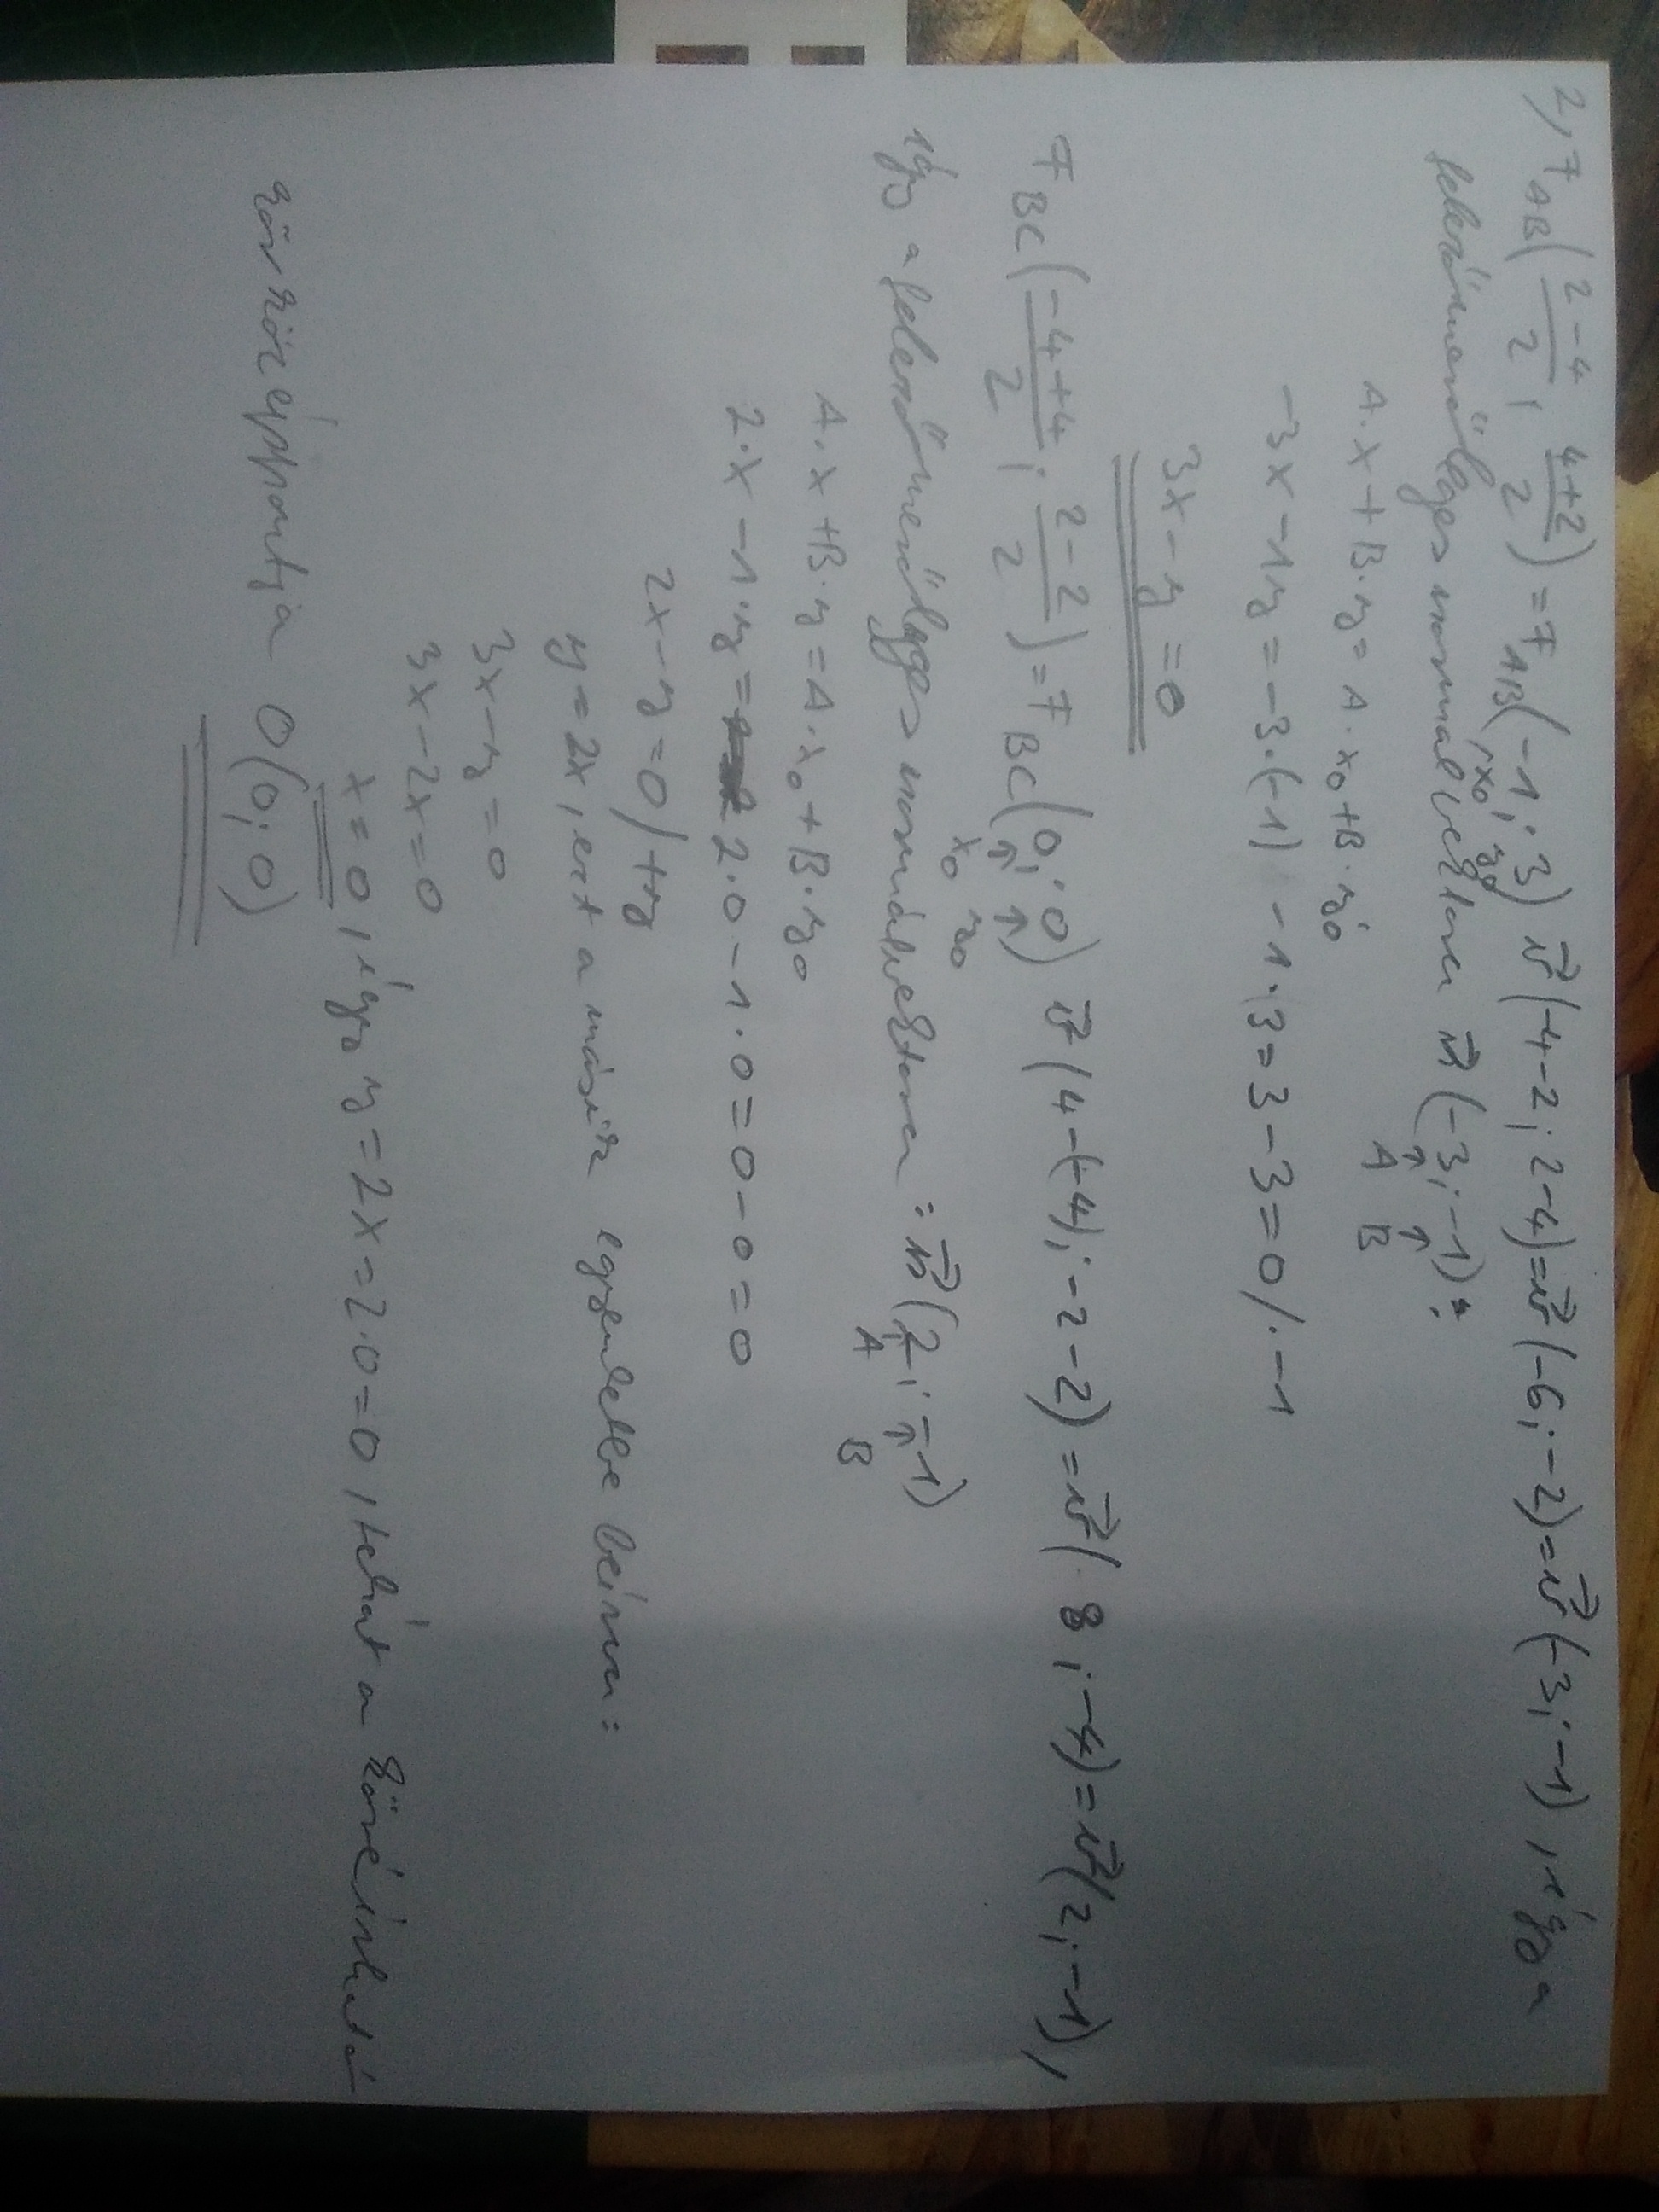 2, F_AB(2-4/2 ; 4+2/2) = F_AB(-1; 3) v⃗(-4-2; 2-4) = v⃗(-6; -2) = v⃗(-3; -1), így a
x₀ y₀
felezőmerőleges normálvektora n⃗(-3; -1):
A B
A·x + B·y = A·x₀ + B·y₀
-3x - 1y = -3·(-1) - 1·3 = 3 - 3 = 0 /·-1
3x - y = 0
F_BC(-4+4/2 ; 2-2/2) = F_BC(0; 0) v⃗(4-(-4); -2-2) = v⃗(8; -4) = v⃗(2; -1),
x₀ y₀
így a felezőmerőleges normálvektora: n⃗(2; -1)
A B
A·x + B·y = A·x₀ + B·y₀
2·x - 1·y = 2·0 - 1·0 = 0 - 0 = 0
2x - y = 0 /+y
y = 2x, ezt a másik egyenletbe beírva:
3x - y = 0
3x - 2x = 0
x = 0, így y = 2x = 2·0 = 0, tehát a köré írható
kör középpontja O(0; 0)